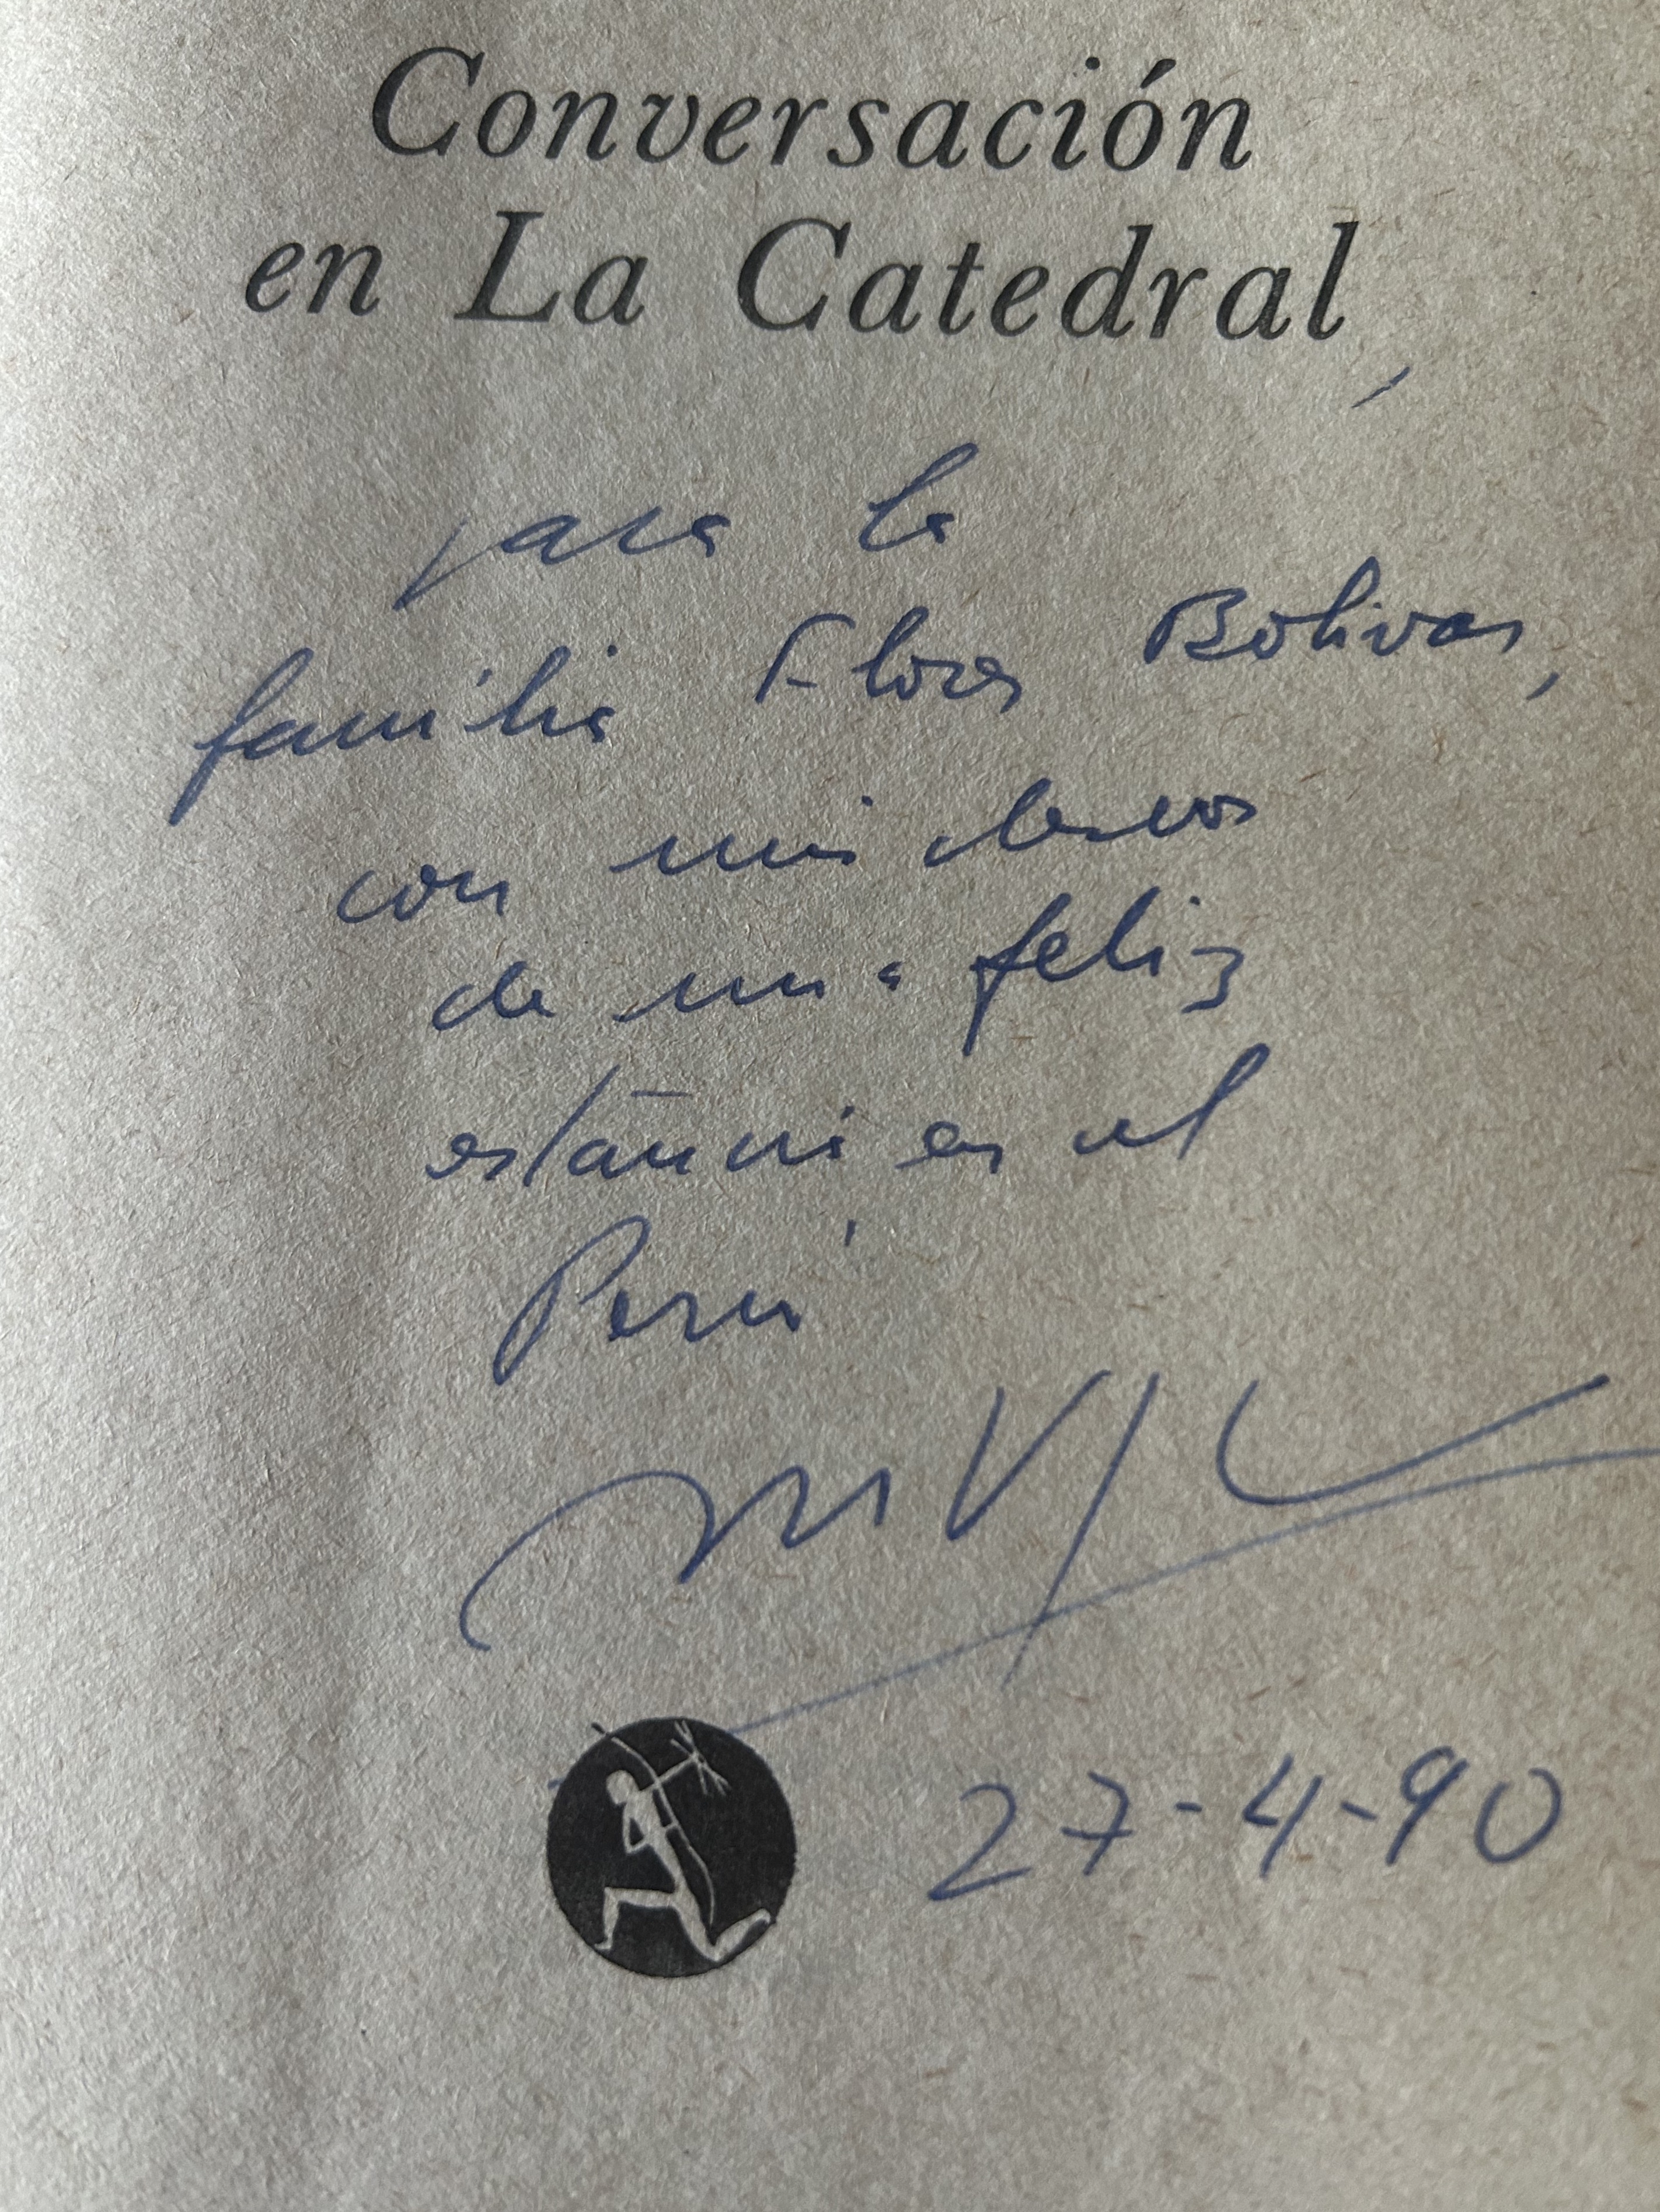 Conversación
en La Catedral
para la
familia Flores Bolivar,
con mis deseos
de una feliz
estancia en el
Perú
27-4-90